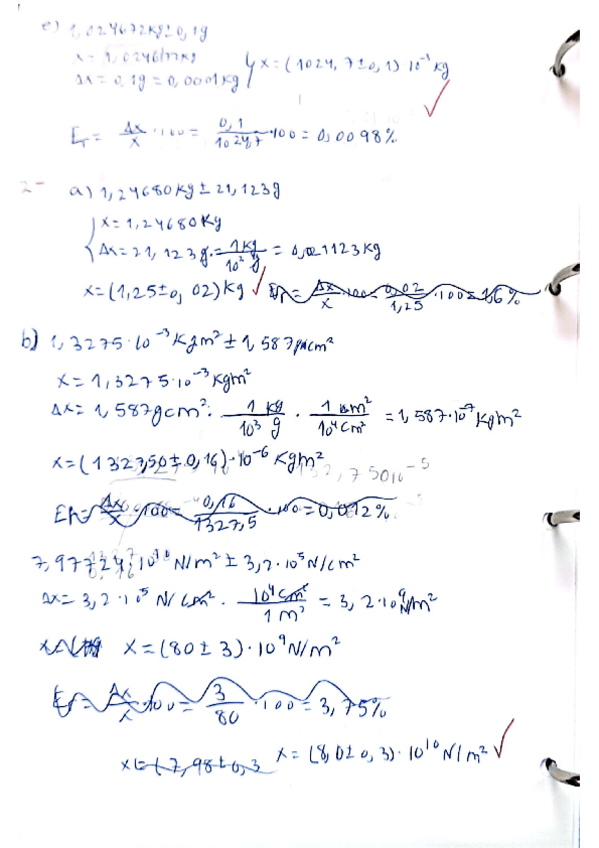 e) 1,024672kg±0,1g
x=1,024672kg
Δx=0,1g=0,0001kg } x=(1024,7±0,1)10⁻³kg
Er= Δx/x ·100= 0,1/1024,7 ·100= 0,0098%
2- a) 1,24680kg±21,123g
x=1,24680kg
Δx=21,123g· 1kg/10³g = 0,021123kg
x=(1,25±0,02)kg Er= Δx/x ·100= 0,02/1,25 ·100=1,6%
b) 1,3275·10⁻³Kgm²±1,587gcm²
x=1,3275·10⁻³Kgm²
Δx=1,587gcm²· 1kg/10³g · 1m²/10⁴cm² =1,587·10⁻⁷Kgm²
x=(1327,50±0,16)·10⁻⁶Kgm²
132,75010⁻⁵
Er= Δx/x ·100= 0,16/1327,5 ·100=0,012%
7,97724·10¹⁰N/m²±3,2·10⁵N/cm²
Δx=3,2·10⁵N/cm²· 10⁴cm²/1m² =3,2·10⁹N/m²
x=(80±3)·10⁹N/m²
Er= Δx/x ·100= 3/80 ·100=3,75%
x=(7,98±0,3 x=(8,0±0,3)·10¹⁰N/m²